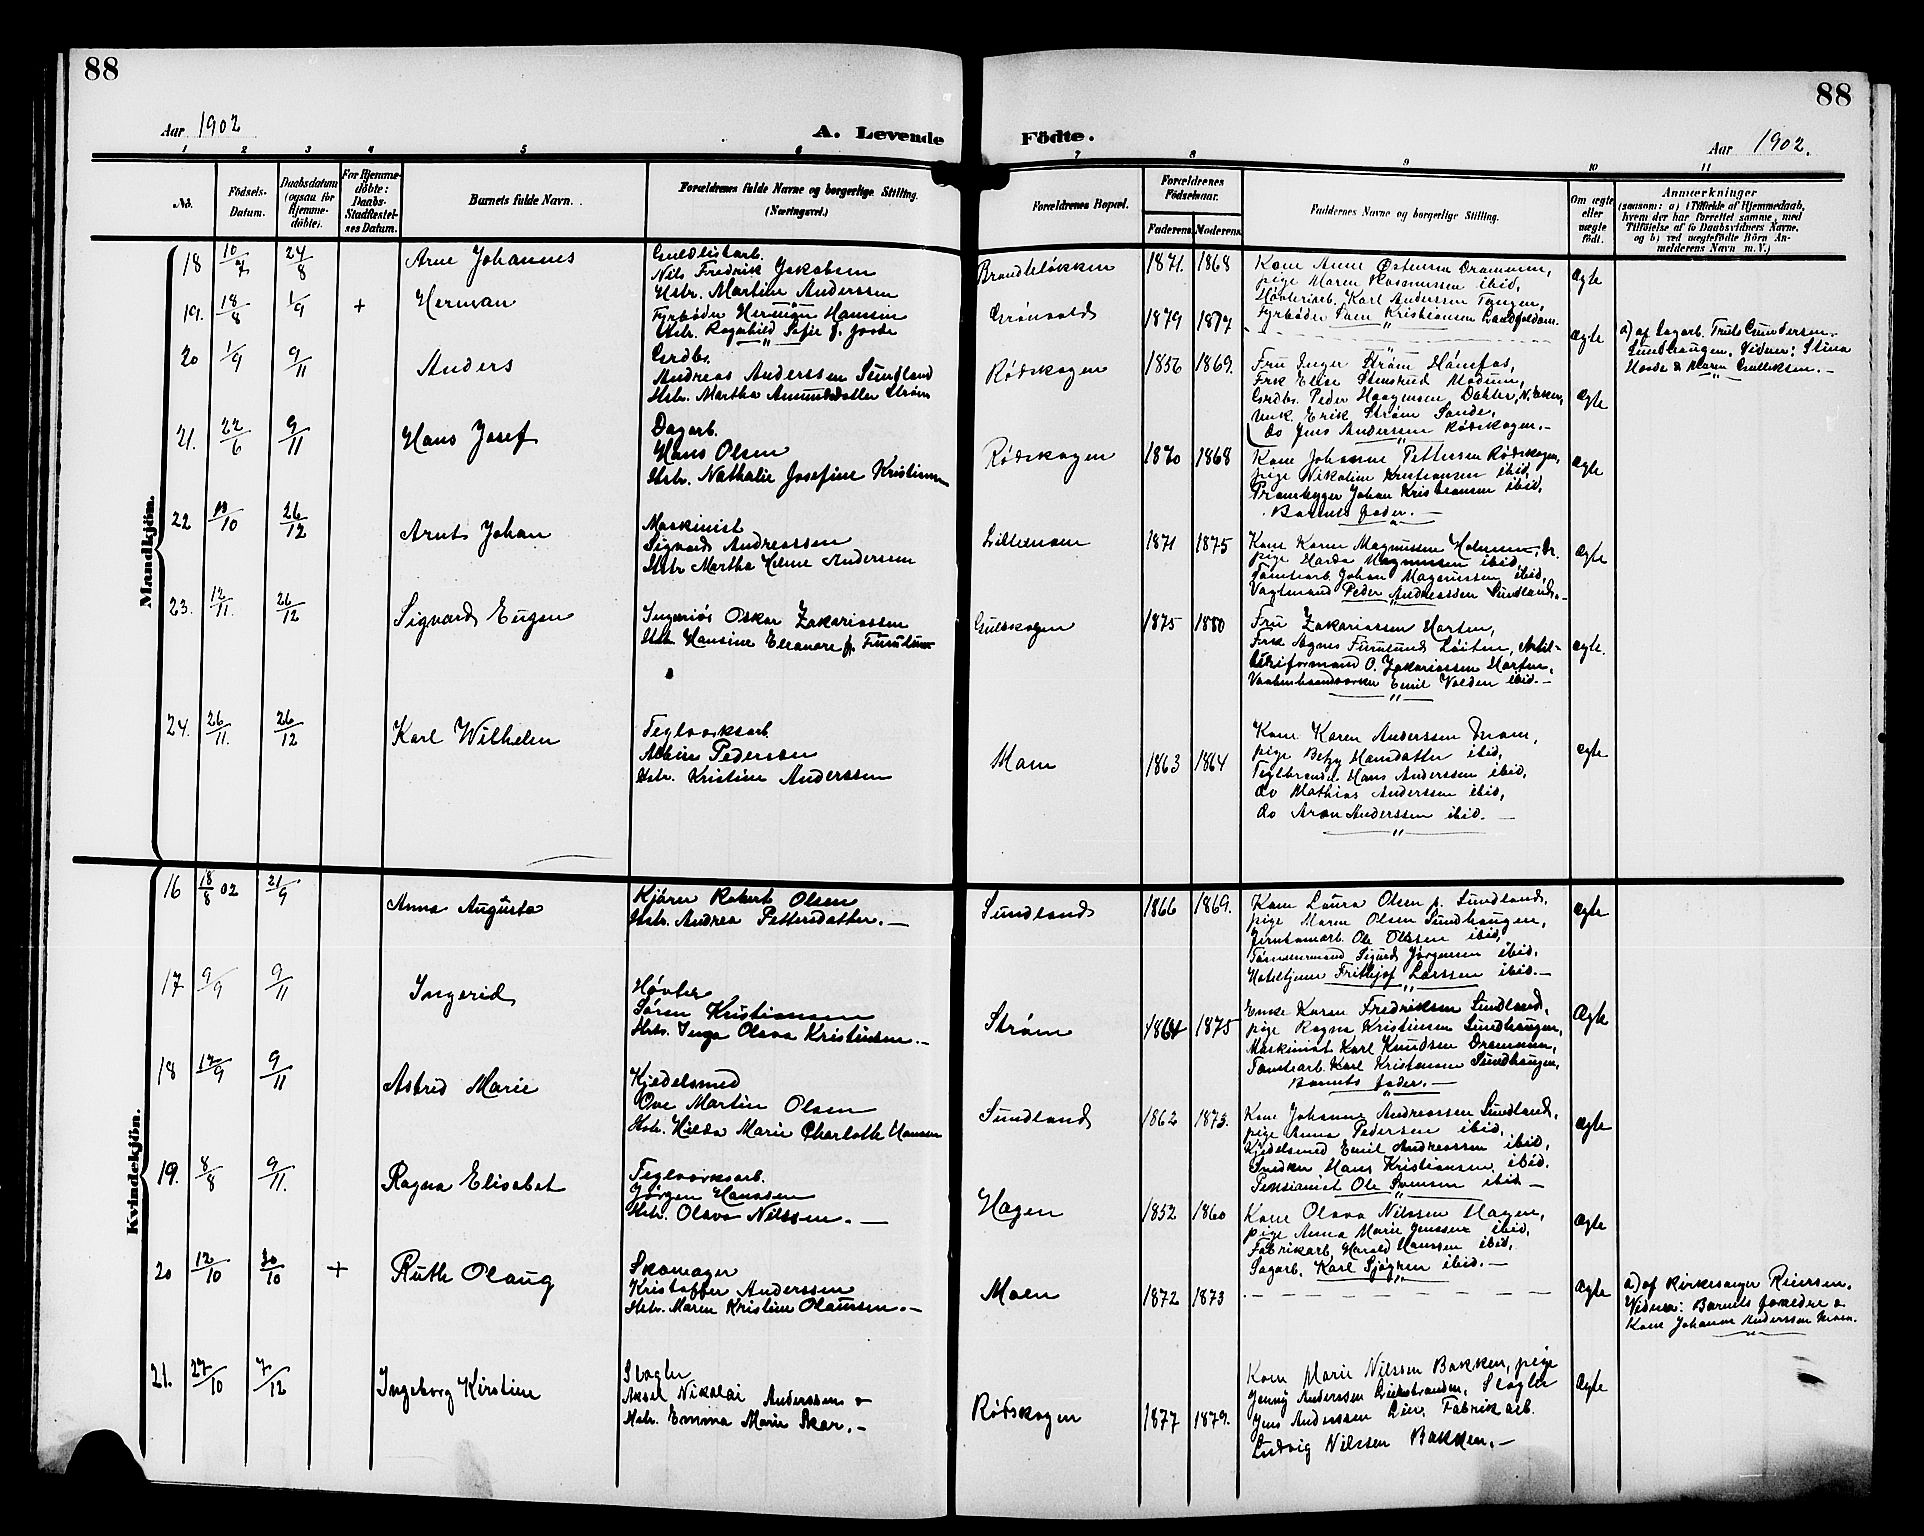 88
88
Aar 1902
A. Levende
Födte.
Aar 1902.
1 2 3 4 5 6 7 8 9 10 11
No.
Födsels-
Datum.
Daabsdatum
(ogsaa for
Hjemme-
döbte).
For Hjemme-
döbte:
Daabs-
Stadfæstel-
ses Datum.
Barnets fulde Navn.
Forældrenes fulde Navne og borgerlige Stilling.
(Næringsvei.)
Forældrenes Bopæl.
Forældrenes
Födselsaar.
Faderens Moderens
Faddernes Navne og borgerlige Stilling.
Om ægte
eller
uægte
födt.
Anmærkninger
(saasom: a) i Tilfælde af Hjemmedaab,
hvem der har forrettet samme, med
Tilföielse af to Daabsvidners Navne,
og b) ved uægtefödte Börn An-
melderens Navn m. V.)
Mandkjön.
18 10/7 24/8 Arne Johannes
Guldlistarb.
Nils Fredrik Jakobsen
Hstr. Martine Anderssen
Brandteløkken 1871. 1868
Kone Anne Østensen Drammen,
pige Maren Rasmussen ibid,
Høvleriarb. Karl Anderssen Tangen,
Fyrbøder Sam Kristiansen
Ægte
19. 18/8 1/9 + Herman
Fyrbøder Herman Hansen
Hstr. Ragnhild Sofie f. Foss
Grønvold 1879 1877
Ægte
a) af Sagarb. Truls Gundersen
Sundhaugen. Vidner: Stina
Hoode & Maren Gulliksen. —
20 1/9 9/11 Anders
Grdbr.
Andreas Anderssen Sundland
Hstr. Martha Amundsdatter Strøm
Rødskogen 1856 1869.
Fru Inger Strøm Hønefos,
Frk Elise Stensrud Modum,
Grdbr. Peder Haagensen Dahler, N. Eker,
Umk. Erik Strøm Sande,
do Jens Anderssen Rødskogen. —
Ægte
21. 22/6 9/11 Hans Josef
Dagarb.
Hans Olsen
Hstr. Nathalie Josefine Kristiansen
Rødskogen 1870 1868
Kone Johanne Pettersen Rødskogen,
pige Nikoline Kristiansen ibid,
Prambygger Johan Kristiansen ibid,
Barnets fader. —
Ægte
22 10/10 26/12 Arnt Johan
Maskinist
Sigvard Andreassen
Hstr Martha Helene Anderssen
Lillemoen 1871 1875
Kone Karen Magnussen Holmen, Dr.
pige Harda Magnussen ibid,
Tomtearb. Johan Magnussen ibid,
Vagtmand Peder Andreassen Sundland. —
Ægte
23. 12/11. 26/12 Sigvard Eugen
Ingeniør Oskar Zakariassen
Hstr Hansine Eleonore f. Furulund
Gulskogen 1875 1880
Fru Zakariassen Horten,
Frk Agnes Furulund Løiten, Artil-
leriformand O. Zakariassen Horten,
Vaabenhaandværker Emil Volden ibid. —
ægte.
24. 26/11. 26/12 Karl Wilhelm
Teglværksarb.
Albin Pedersen
Hstr. Kristine Anderssen
Moen 1863 1864
Kone Karen Anderssen Moen,
pige Betzy Hansdatter ibid,
Teglbrænder Hans Anderssen ibid,
do Mathias Anderssen ibid,
do Aron Anderssen ibid. —
ægte
Kvindekjön.
16 18/8 02 21/9 Anna Augusta
Kjører Robert Olsen
Hstr. Andrea Pettersdatter. —
Sundland 1866 1869.
Kone Laura Olsen f. Sundland,
pige Maren Olsen Sundhaugen,
Jerntomarb. Ole Olssen ibid,
Tømmermand Sigurd Jørgensen ibid,
Hoteltjener Frithjof Larssen ibid. —
ægte
17 9/9 9/11 Ingerid
Høvler
Søren Kristiansen
Hstr. Inga Olava Kristensen. —
Strøm 1864 1875
Enke Karen Fredriksen Sundland,
pige Ragna Kristensen Sundhaugen,
Maskinist Karl Knudsen Drammen,
Tomtearb. Karl Kristensen Sundhaugen,
Barnets fader. —
Ægte
18 17/9 9/11 Astrid Marie
Kjedelsmed
Ove Martin Olsen
Hstr. Hilda Marie Charlotte Hansen
Sundland 1862 1873.
Kone Johanne Andreassen Sundland,
pige Anna Pedersen ibid,
Kjedelsmed Emil Andreassen ibid,
Snedker Hans Kristiansen ibid.
Pensionist Ole Svensen ibid —
ægte
19. 8/8 9/11. Ragna Elisabet
Teglværksarb.
Jørgen Hanssen
Hstr. Olava Nilssen. —
Hagen 1852 1860
Kone Olava Nilssen Hagen,
pige Anna Marie Jenssen ibid,
Fabrikarb. Harald Hanssen ibid,
Sagarb. Karl Sjøgren ibid. —
Ægte
20 12/10 30/10 + Ruth Olaug
Skomager
Kristoffer Anderssen
Hstr. Maren Kristine Olaussen. —
Moen 1872 1873
Ægte
a) af Kirkesanger Riersen.
Vidner: Barnets forældre &
Kone Johanne Anderssen Moen.
21. 27/10 7/12 Ingeborg Kirstine
Slagter
Aksel Nikolai Anderssen &
Hstr. Emma Marie Skar. —
Rødskogen 1877 1879.
Kone Marie Nilssen Bakken, pige
Jenny Anderssen Lierstranden, Slagter
Jens Anderssen Lier, Fabrikarb.
Ludvig Nilssen Bakken. —
Ægte